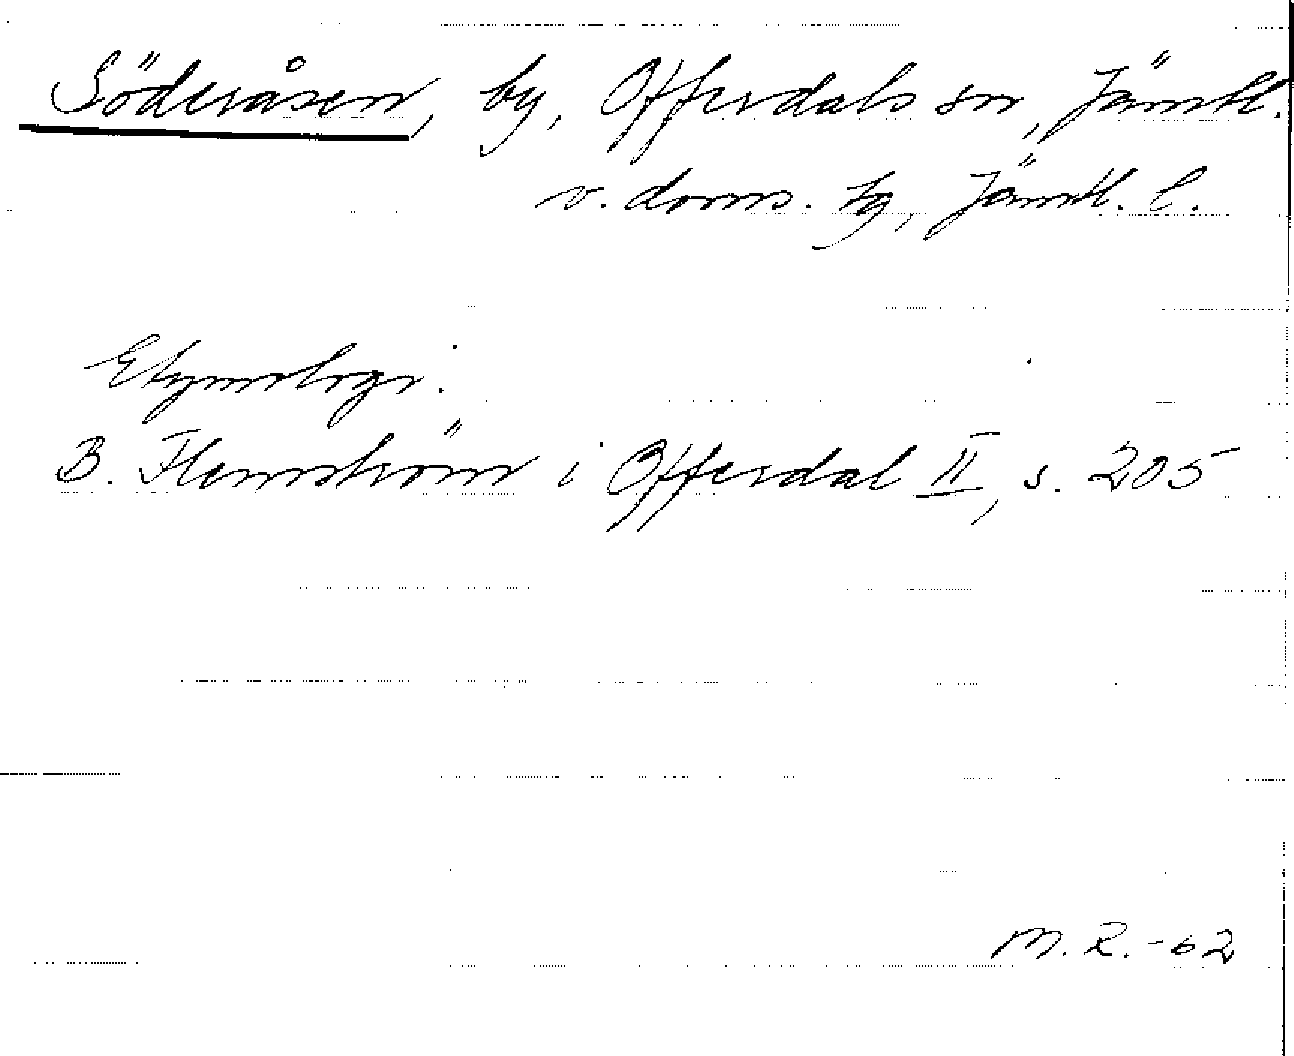 Söderåsen, by, Offerdals sn, Jämtl.
v. doms. tg, Jämtl. l.
Etymologi.
B. Flemström i Offerdal II, s. 205
M. R. -62